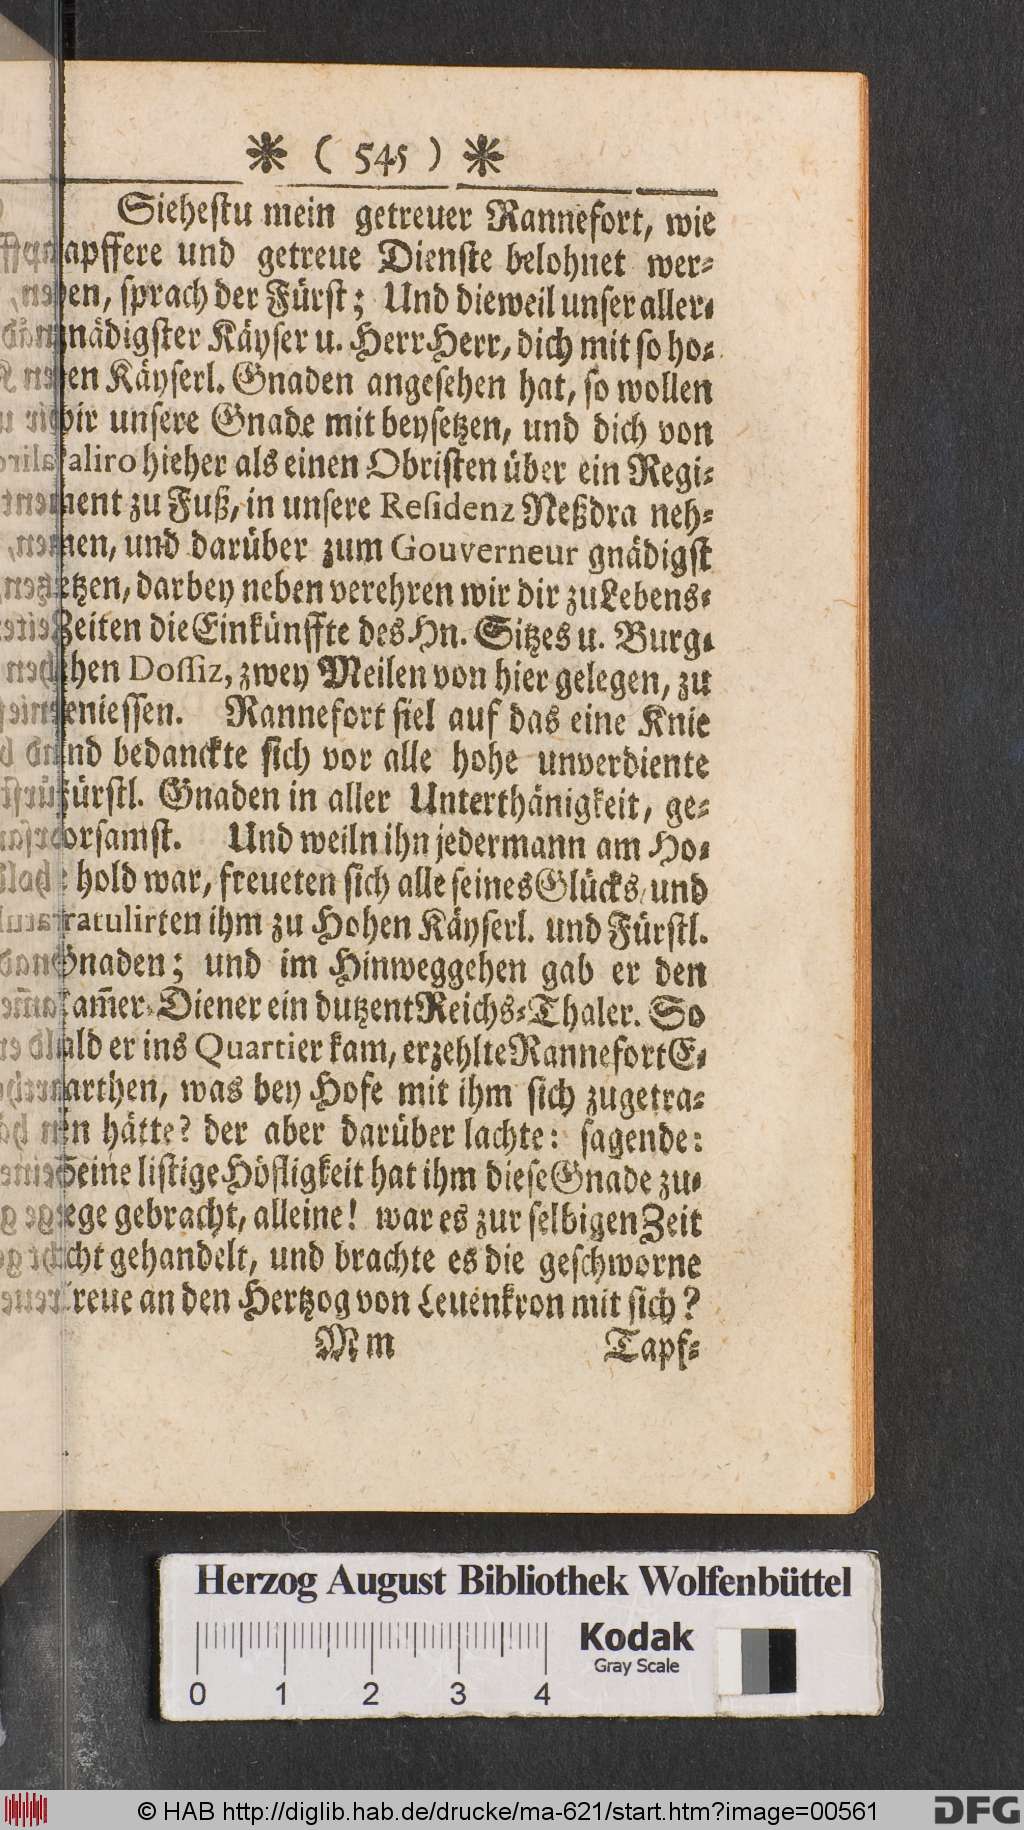 * ( 545 ) *
Siehestu mein getreuer Rannefort, wie
apffere und getreue Dienste belohnet wer-
en, sprach der Fürst; Und dieweil unser aller-
nädigster Käyser u. Herr Herr, dich mit so ho-
en Käyserl. Gnaden angesehen hat, so wollen
ir unsere Gnade mit beysetzen, und dich von
aliro hieher als einen Obristen über ein Regi-
ment zu Fuß, in unsere Residenz Neßdra neh-
men, und darüber zum Gouverneur gnädigst
etzen, darbey neben verehren wir dir zu Lebens-
Zeiten die Einkünffte des Hn. Sitzes u. Burg-
hen Dossiz, zwey Meilen von hier gelegen, zu
geniessen. Rannefort fiel auf das eine Knie
und bedanckte sich vor alle hohe unverdiente
Fürstl. Gnaden in aller Unterthänigkeit, ge-
orsamst. Und weiln ihn jedermann am Ho-
hold war, freueten sich alle seines Glücks, und
gratulirten ihm zu Hohen Käyserl. und Fürstl.
Gnaden; und im Hinweggehen gab er den
Kam̃er-Diener ein dutzent Reichs-Thaler. So
bald er ins Quartier kam, erzehlte Rannefort E-
arthen, was bey Hofe mit ihm sich zugetra-
en hätte? der aber darüber lachte: sagende:
Seine listige Höfligkeit hat ihm diese Gnade zu-
ege gebracht, alleine! war es zur selbigen Zeit
cht gehandelt, und brachte es die geschworne
Treue an den Hertzog von Leuenkron mit sich?
Mm Tapf-
Herzog August Bibliothek Wolfenbüttel
Kodak
Gray Scale
0 1 2 3 4
© HAB http://diglib.hab.de/drucke/ma-621/start.htm?image=00561
DFG